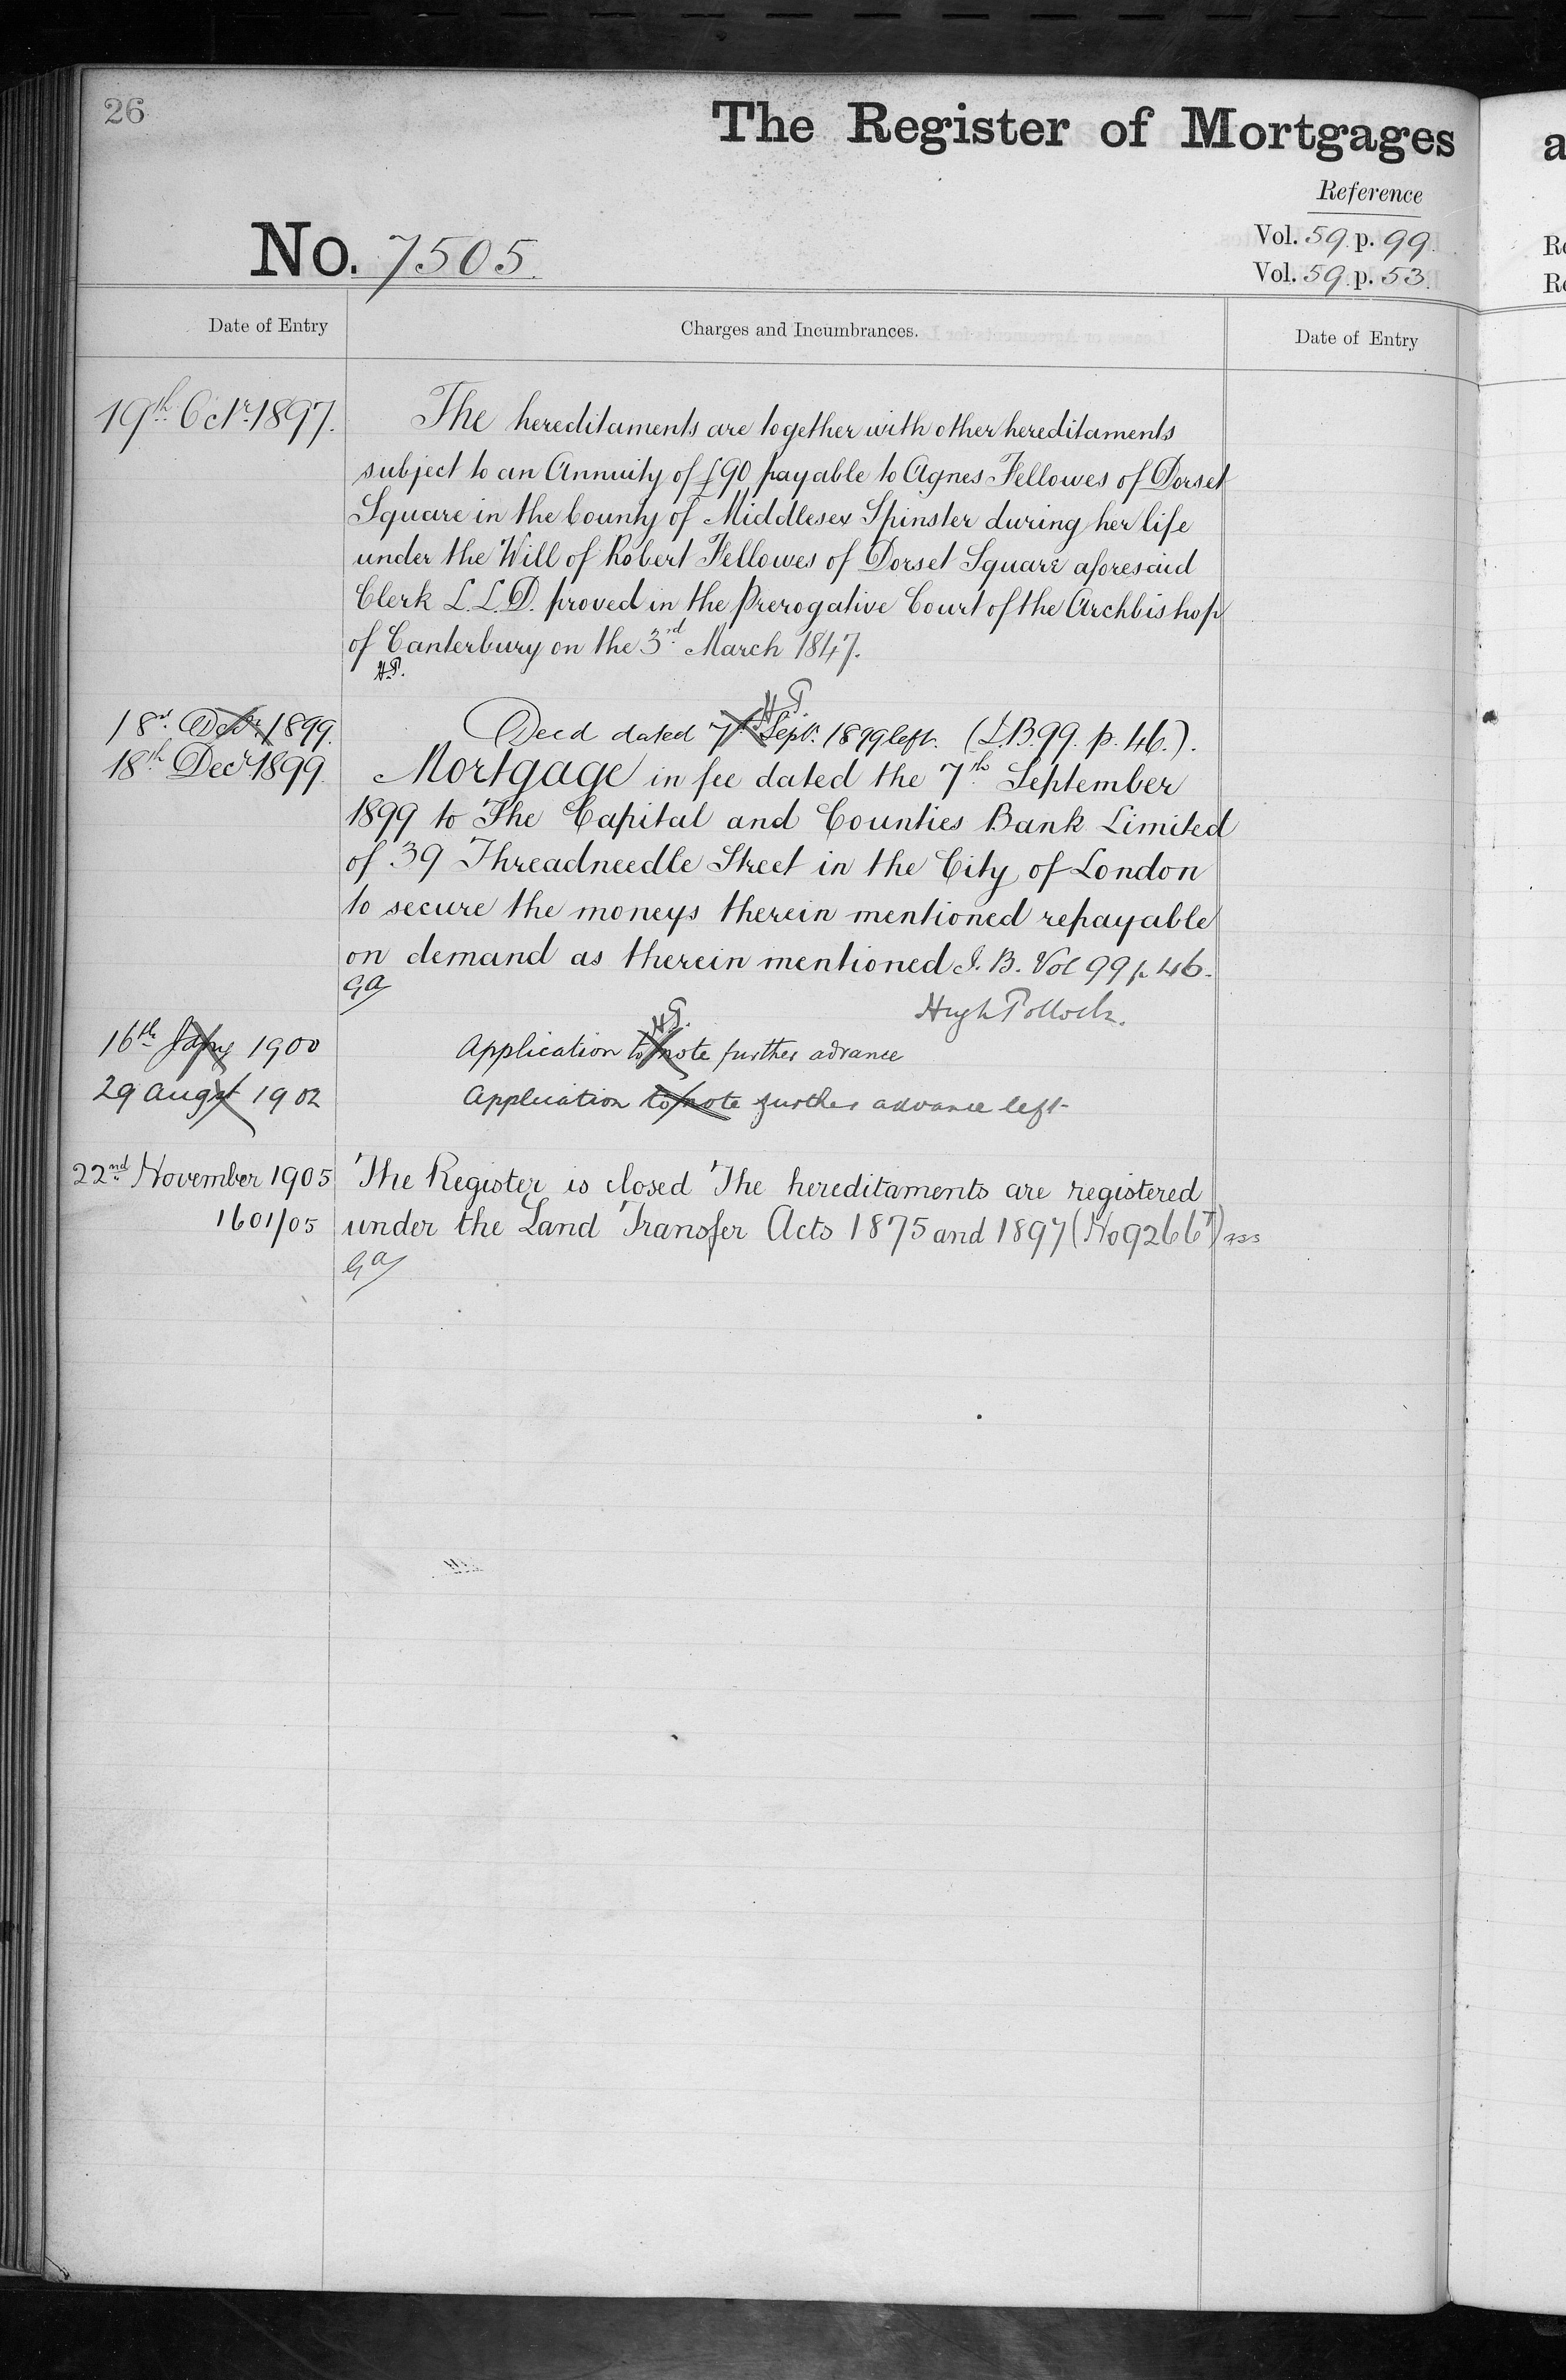 26
The Register of Mortgages
Reference
Vol. 59. p. 99.
Vol. 59. p. 53.
No. 7505.
Date of Entry
Charges and Incumbrances.
Date of Entry
19th Octr. 1897.
The hereditaments are together with other hereditaments
subject to an Annuity of £90 payable to Agnes Fellowes of Dorset
Square in the County of Middlesex Spinster during her life
under the Will of Robert Fellowes of Dorset Square aforesaid
Clerk L.L.D. proved in the Prerogative Court of the Archbishop
of Canterbury on the 3rd March 1847.
H.P.
H.P.
18th Decr. 1899.
Deed dated 7th Sept. 1899 left. (I.B. 99. p. 46.).
18th Decr. 1899.
Mortgage in fee dated the 7th September
1899 to The Capital and Counties Bank Limited
of 39 Threadneedle Street in the City of London
to secure the moneys therein mentioned repayable
on demand as therein mentioned I. B. Vol 99 p 46.
GA
Hugh Pollock.
H.P.
16th Jany 1900
Application to note further advance
29 Augst 1902
Application to note further advance left
22nd November 1905
The Register is closed The hereditaments are registered
1601/05
under the Land Transfer Acts 1875 and 1897 (No 9266T)
GA
a
Re
Re